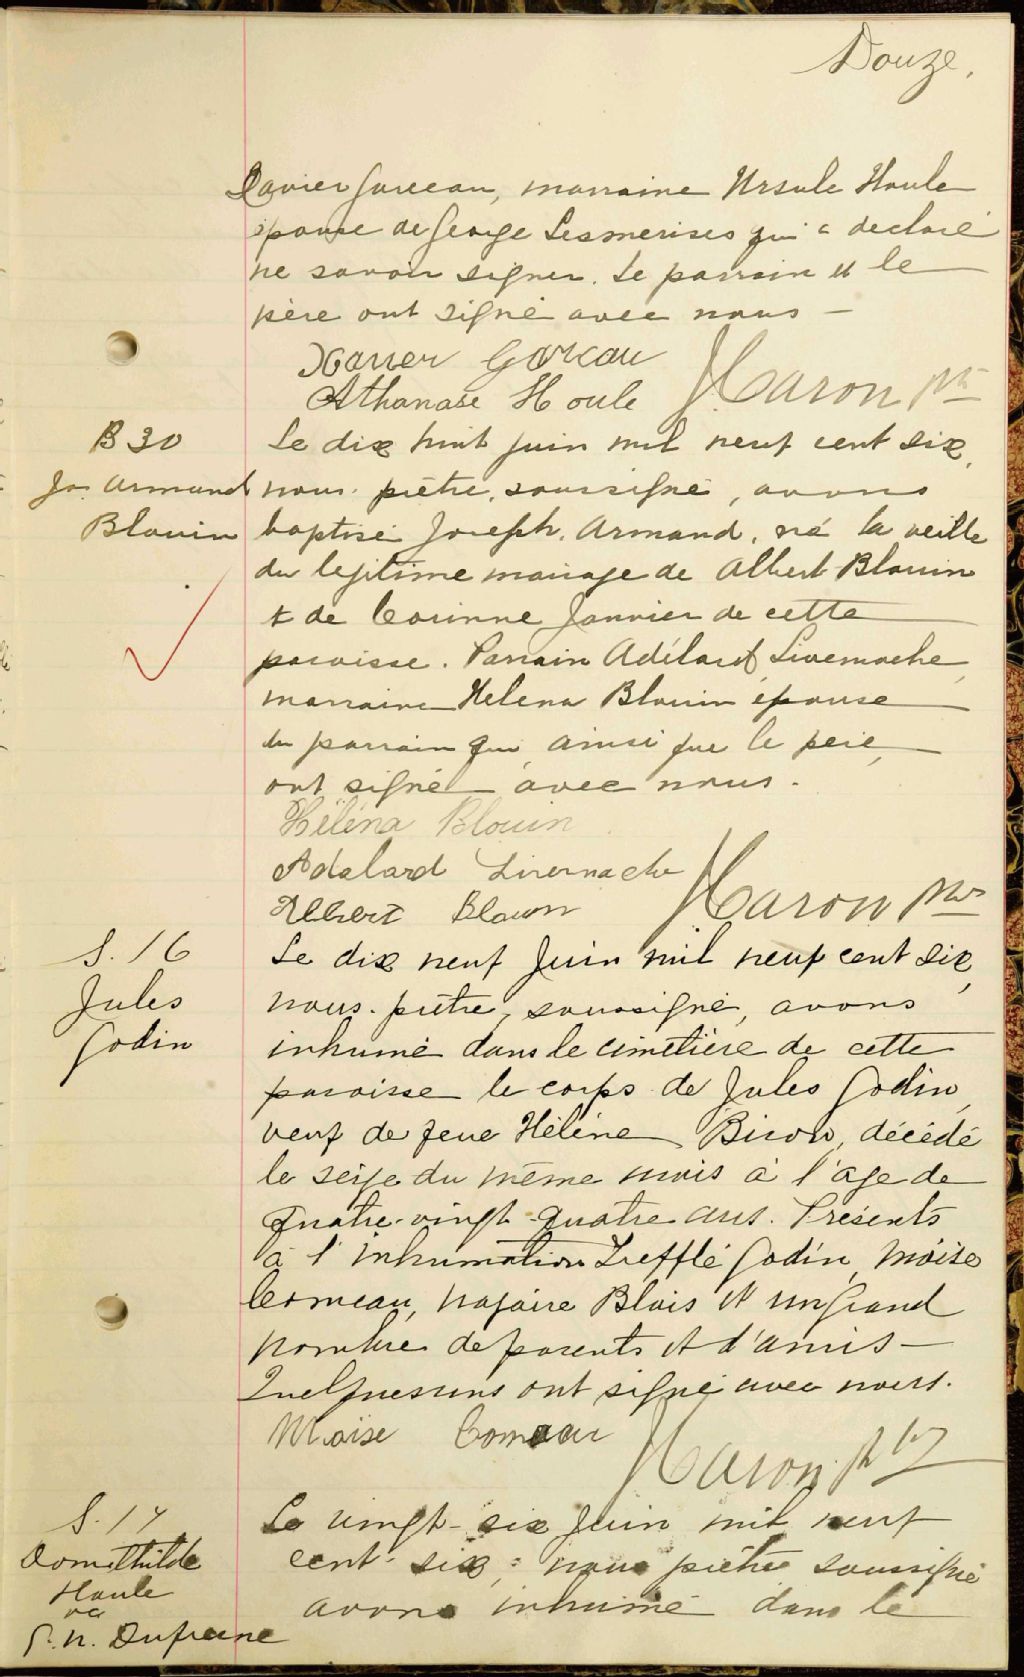 Douze.
Xavier Garceau, marraine Ursule Houle
épouse de George Lesmerises qui a declaré
ne savoir signer. Le parrain et le
père ont signé avec nous —
Xavier Garceau
Athanase Houle
Haron ptre
B 30
Jos. Armand
Blouin
Le dix huit juin mil neuf cent six,
nous prêtre, soussigné, avons
baptisé Joseph, Armand, né la veille
du legitime mariage de Albert Blouin
& de Corinne Janvier de cette
paroisse. Parrain Adélard Livernoche,
marraine Helena Blouin épouse
du parrain qui ainsi que le père,
ont signé avec nous.
Héléna Blouin
Adalard Livernoche
Albert Blouin
Haron ptre
S. 16
Jules
Godin
Le dix neuf Juin mil neuf cent six,
nous prêtre, soussigné, avons
inhumé dans le cimetière de cette
paroisse le corps de Jules Godin,
veuf de feue Hélène Biron, décédé
le seize du même mois à l'age de
quatre-vingt-quatre ans. Présents
à l'inhumation Trefflé Godin, Moïse
Comeau, Nazaire Blais et un grand
nombre de parents et d'amis —
Quelques uns ont signé avec nous.
Moïse Comeau
Haron ptre
S. 17
Domithilde
Houle
P. N. Dufresne
Le vingt-six Juin mil neuf
cent six, nous prêtre soussigné
avons inhumé dans le